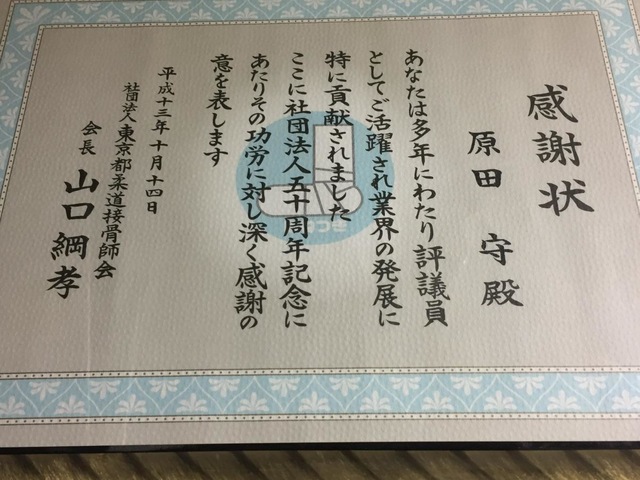 感謝状
原田 守 殿
あなたは多年にわたり評議員
としてご活躍され業界の発展に
特に貢献されました
ここに社団法人五十周年記念に
あたりその功労に対し深く感謝の
意を表します
平成十三年十月十四日
社団法人東京都柔道接骨師会
会長 山口綱孝